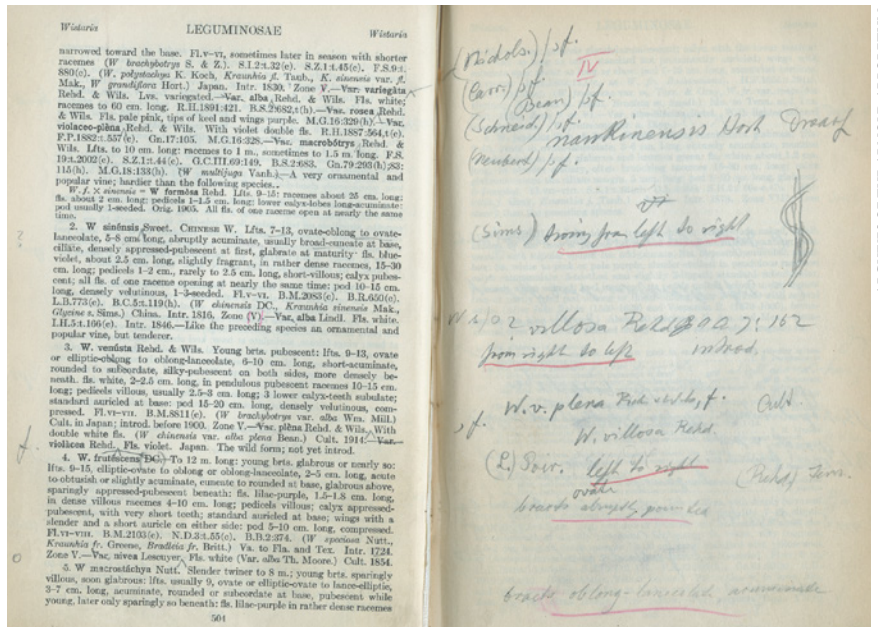 Wistaria LEGUMINOSAE Wistaria
narrowed toward the base. Fl.v–vi, sometimes later in season with shorter
racemes (W brachybotrys S. & Z.). S.I.2:t.32(c). S.Z.1:t.45(c). F.S.9:t.
880(c). (W. polystachya K. Koch, Kraunhia fl. Taub., K. sinensis var. fl.
Mak., W grandiflora Hort.) Japan. Intr. 1830. Zone V.—Var. variegàta
Rehd. & Wils. Lvs. variegated.—Var. alba Rehd. & Wils. Fls. white;
racemes to 60 cm. long. R.H.1891:421. B.S.2:682,t(h).—Var. rosea Rehd.
& Wils. Fls. pale pink, tips of keel and wings purple. M.G.16:329(h).—Var.
violaceo-plèna Rehd. & Wils. With violet double fls. R.H.1887:564,t(c).
F.P.1882:t.557(c). Gn.17:105. M.G.16:328.—Var. macrobótrys Rehd. &
Wils. Lfts. to 10 cm. long: racemes to 1 m., sometimes to 1.5 m. long. F.S.
19:t.2002(c). S.Z.1:t.44(c). G.C.III.69:149. B.S.2:683. Gn.79:293(h);83:
115(h). M.G.18:133(h). (W multijuga Vanh.)—A very ornamental and
popular vine; hardier than the following species.
W. f. × sinensis = W formòsa Rehd. Lfts. 9–15: racemes about 25 cm. long:
fls. about 2 cm. long; pedicels 1–1.5 cm. long; lower calyx-lobes long-acuminate:
pod usually 1-seeded. Orig. 1905. All fls. of one raceme open at nearly the same
time.
2. W sinénsis Sweet. CHINESE W. Lfts. 7–13, ovate-oblong to ovate-
lanceolate, 5–8 cm. long, abruptly acuminate, usually broad-cuneate at base,
ciliate, densely appressed-pubescent at first, glabrate at maturity: fls. blue-
violet, about 2.5 cm. long, slightly fragrant, in rather dense racemes, 15–30
cm. long; pedicels 1–2 cm., rarely to 2.5 cm. long, short-villous; calyx pubes-
cent; all fls. of one raceme opening at nearly the same time: pod 10–15 cm.
long, densely velutinous, 1–3-seeded. Fl.v–vi. B.M.2083(c). B.R.650(c).
L.B.773(c). B.C.5:t.119(h). (W chinensis DC., Kraunhia sinensis Mak.,
Glycine s. Sims.) China. Intr. 1816. Zone (V).—Var. alba Lindl. Fls. white.
I.H.5:t.166(c). Intr. 1846.—Like the preceding species an ornamental and
popular vine, but tenderer.
3. W. venústa Rehd. & Wils. Young brts. pubescent: lfts. 9–13, ovate
or elliptic-oblong to oblong-lanceolate, 6–10 cm. long, short-acuminate,
rounded to subcordate, silky-pubescent on both sides, more densely be-
neath. fls. white, 2–2.5 cm. long, in pendulous pubescent racemes 10–15 cm.
long; pedicels villous, usually 2.5–3 cm. long; 3 lower calyx-teeth subulate;
standard auricled at base: pod 15–20 cm. long, densely velutinous, com-
pressed. Fl.vi–vii. B.M.8811(c). (W brachybotrys var. alba Wm. Mill.)
Cult. in Japan; introd. before 1900. Zone V.—Var. plèna Rehd. & Wils. With
double white fls. (W chinensis var. alba plena Bean.) Cult. 1914.—Var.
violàcea Rehd. Fls. violet. Japan. The wild form; not yet introd.
4. W. frutéscens DC. To 12 m. long: young brts. glabrous or nearly so:
lfts. 9–15, elliptic-ovate to oblong or oblong-lanceolate, 2–5 cm. long, acute
to obtusish or slightly acuminate, cuneate to rounded at base, glabrous above,
sparingly appressed-pubescent beneath: fls. lilac-purple, 1.5–1.8 cm. long,
in dense villous racemes 4–10 cm. long; pedicels villous; calyx appressed-
pubescent, with very short teeth; standard auricled at base; wings with a
slender and a short auricle on either side: pod 5–10 cm. long, compressed.
Fl.vi–viii. B.M.2103(c). N.D.3:t.55(c). B.B.2:374. (W speciosa Nutt.,
Kraunhia fr. Greene, Bradleia fr. Britt.) Va. to Fla. and Tex. Intr. 1724.
Zone V.—Var. nivea Lescuyer, Fls. white (Var. alba Th. Moore.) Cult. 1854.
5. W macrostáchya Nutt. Slender twiner to 8 m.; young brts. sparingly
villous, soon glabrous: lfts. usually 9, ovate or elliptic-ovate to lance-elliptic,
3–7 cm. long, acuminate, rounded or subcordate at base, pubescent while
young, later only sparingly so beneath: fls. lilac-purple in rather dense racemes
504
?
f.
o
(Nichols.) f.
IV
(Carr.) f.
(Bean) f.
(Schneid) f.
nankinensis Hort Dwarf
f.
(Sims) twining from left to right
villosa Rehd 7: 162
from right to left introd.
f. W. v. plena Rehd & Wils, f. Cult.
W. villosa Rehd.
(L.) Poir. left to right
ovate
bracts abruptly pointed
bracts oblong-lanceolate, acuminate